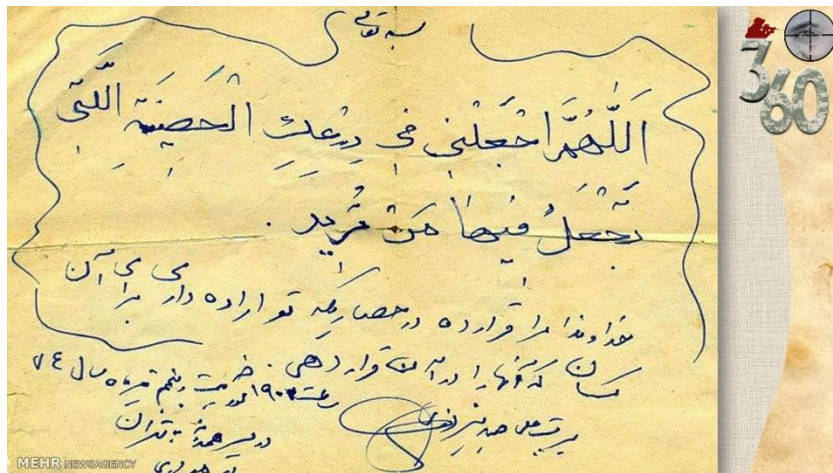 بسمه تعالی
اَللّهُمَّ اجْعَلْنی فی دِرْعِكَ الْحَصینَةِ الَّتی
تَجْعَلُ فیها مَنْ تُریدُ .
خداوندا مرا قرار ده در حصاریکه تو اراده داری برای آن
کسان که آنها را در آن قرار دهی .
ساعت ۱۹۰۰ بیست و پنجم تیر ماه سال ٧٤
در مسیر همدان تهران
360
MEHR NEWSAGENCY